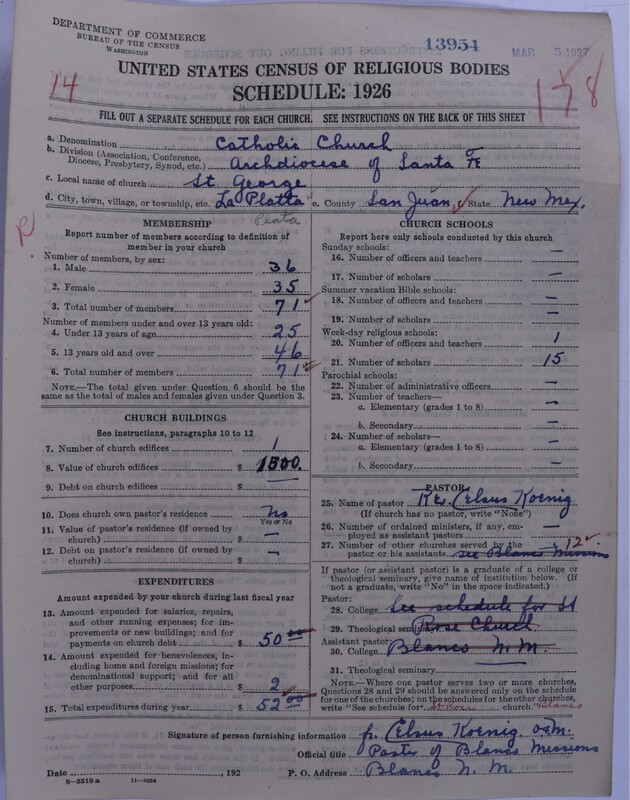 DEPARTMENT OF COMMERCE
BUREAU OF THE CENSUS
WASHINGTON
13954
MAR 5 1927
UNITED STATES CENSUS OF RELIGIOUS BODIES
SCHEDULE: 1926
14
178
FILL OUT A SEPARATE SCHEDULE FOR EACH CHURCH. SEE INSTRUCTIONS ON THE BACK OF THIS SHEET
a. Denomination Catholic Church
b. Division (Association, Conference, Diocese, Presbytery, Synod, etc.) Archdiocese of Santa Fe
c. Local name of church St George
d. City, town, village, or township, etc. La Platta e. County San Juan f. State New Mex.
Plata
MEMBERSHIP
Report number of members according to definition of
member in your church
Number of members, by sex:
1. Male 36
2. Female 35
3. Total number of members 71
Number of members under and over 13 years old:
4. Under 13 years of age 25
5. 13 years old and over 46
6. Total number of members 71
NOTE.—The total given under Question 6 should be
same as the total of males and females given under Question 3.
CHURCH BUILDINGS
See instructions, paragraphs 10 to 12
7. Number of church edifices 1
8. Value of church edifices $ 1500.
9. Debt on church edifices $ —
10. Does church own pastor's residence No
Yes or No
11. Value of pastor's residence (if owned by
church) $ —
12. Debt on pastor's residence (if owned by
church) $ —
EXPENDITURES
Amount expended by your church during last fiscal year
13. Amount expended for salaries, repairs,
and other running expenses; for im-
provements or new buildings; and for
payments on church debt $ 50 00
14. Amount expended for benevolences, in-
cluding home and foreign missions; for
denominational support; and for all
other purposes $ 2
15. Total expenditures during year $ 52 00
CHURCH SCHOOLS
Report here only schools conducted by this church
Sunday schools:
16. Number of officers and teachers —
17. Number of scholars —
Summer vacation Bible schools:
18. Number of officers and teachers —
19. Number of scholars —
Week-day religious schools:
20. Number of officers and teachers 1
21. Number of scholars 15
Parochial schools:
22. Number of administrative officers —
23. Number of teachers—
a. Elementary (grades 1 to 8) —
b. Secondary —
24. Number of scholars—
a. Elementary (grades 1 to 8) —
b. Secondary —
PASTOR
25. Name of pastor Rev. Celsus Koenig
(If church has no pastor, write "None")
26. Number of ordained ministers, if any, em-
ployed as assistant pastors —
27. Number of other churches served by the 12
pastor or his assistants see Blanco Missions
If pastor (or assistant pastor) is a graduate of a college or
theological seminary, give name of institution below. (If
not a graduate, write "No" in the space indicated.)
Pastor:
28. College See schedule for St
29. Theological seminary Rose Church.
Assistant pastor:
30. College Blanco N. M.
31. Theological seminary
NOTE.—Where one pastor serves two or more churches,
Questions 28 and 29 should be answered only on the schedule
for one of the churches; on the schedules for the other churches,
write "See schedule for St Rose church." Blanco
Signature of person furnishing information fr. Celsus Koenig, o.f.m.
Official title Pastor of Blanco Missions
Date , 192 P. O. Address Blanco N. M.
S—5318 a 11—9084